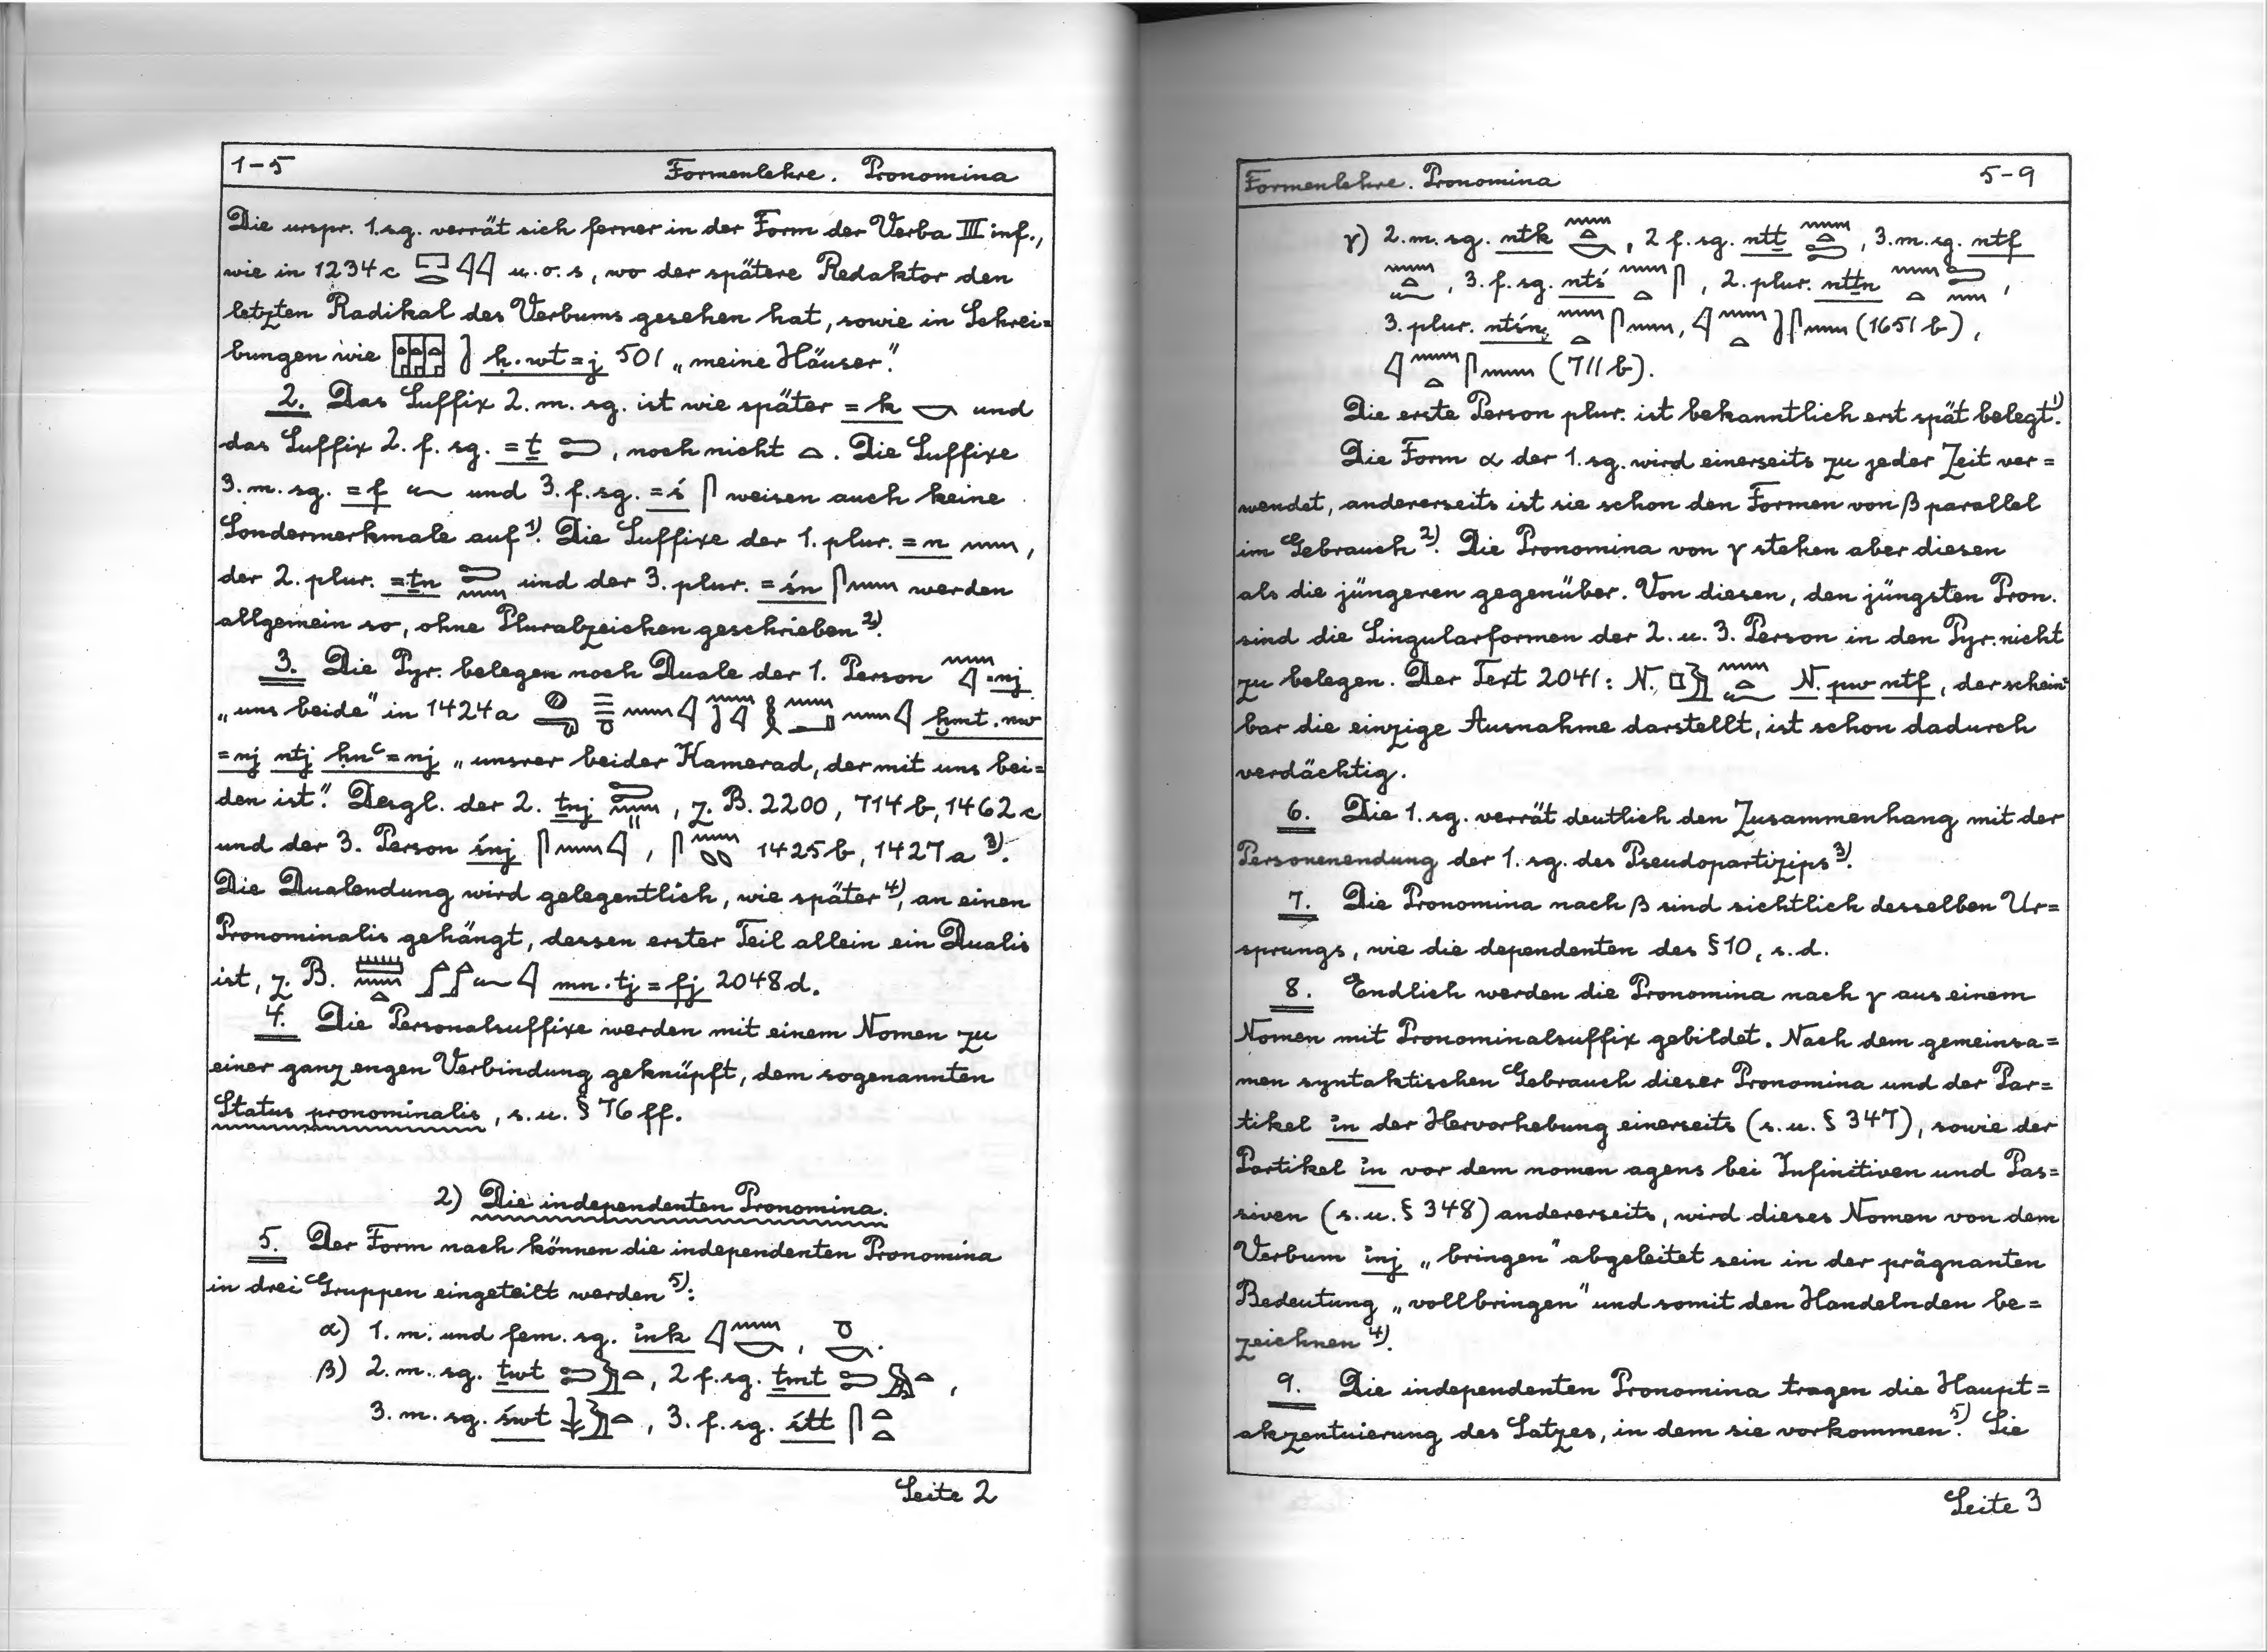 1-5 Formenlehre. Pronomina
Die urspr. 1.sg. verrät sich ferner in der Form der Verba III inf.,
wie in 1234c 𓉐𓂋𓇋𓇋 u.o.s, wo der spätere Redaktor den
letzten Radikal des Verbums gesehen hat, sowie in Schrei=
bungen wie ḥ.wt=j 501 „meine Häuser".
2. Das Suffix 2.m.sg. ist wie später =k 𓎡 und
das Suffix 2.f.sg. =ṯ 𓍿, noch nicht 𓏏. Die Suffixe
3.m.sg. =f 𓆑 und 3.f.sg. =ś 𓋴 weisen auch keine
Sondermerkmale auf 1). Die Suffixe der 1. plur. =n 𓈖,
der 2. plur. =ṯn 𓍿𓈖 und der 3. plur. =śn 𓋴𓈖 werden
allgemein so, ohne Pluralzeichen geschrieben 2).
3. Die Pyr. belegen noch Duale der 1. Person 𓈖𓇋 =nj
„uns beide" in 1424a ḫmt.nw
=nj ntj ḥnꜥ=nj „unsrer beider Kamerad, der mit uns bei=
den ist". Desgl. der 2. ṯnj 𓍿𓈖𓏭, z.B. 2200, 714b, 1462c
und der 3. Person śnj 𓋴𓈖𓇋, 𓋴𓈖 1425b, 1427a 3).
Die Dualendung wird gelegentlich, wie später 4), an einen
Pronominalis gehängt, dessen erster Teil allein ein Dualis
ist, z.B. mn.tj=fj 2048d.
4. Die Personalsuffixe werden mit einem Nomen zu
einer ganz engen Verbindung geknüpft, dem sogenannten
Status pronominalis, s.u. § 76 ff.
2) Die independenten Pronomina.
5. Der Form nach können die independenten Pronomina
in drei Gruppen eingeteilt werden 5):
α) 1.m. und fem.sg. ink 𓇋𓈖𓎡, 𓏌𓎡.
β) 2.m.sg. ṯwt 𓍿𓅱𓏏, 2 f.sg. ṯmt 𓍿𓅓𓏏,
3.m.sg. śwt 𓇓𓅱𓏏, 3.f.sg. śtt 𓋴𓏏𓏏
Seite 2
Formenlehre. Pronomina 5-9
γ) 2.m.sg. ntk 𓈖𓏏𓎡, 2 f.sg. ntṯ 𓈖𓏏𓍿, 3.m.sg. ntf
𓈖𓏏𓆑, 3.f.sg. ntś 𓈖𓏏𓋴, 2.plur. ntṯn 𓈖𓏏𓍿𓈖,
3.plur. ntśn 𓈖𓏏𓋴𓈖, 𓇋𓈖𓏏𓋴𓈖 (1651b),
𓇋𓈖𓏏𓋴𓈖 (711b).
Die erste Person plur. ist bekanntlich erst spät belegt 1).
Die Form α der 1.sg. wird einerseits zu jeder Zeit ver=
wendet, andererseits ist sie schon den Formen von β parallel
im Gebrauch 2). Die Pronomina von γ stehen aber diesen
als die jüngeren gegenüber. Von diesen, den jüngsten Pron.
sind die Singularformen der 2. u. 3. Person in den Pyr. nicht
zu belegen. Der Text 2041: N. 𓊪𓅱 𓈖𓏏𓆑 N. pw ntf, der schein=
bar die einzige Ausnahme darstellt, ist schon dadurch
verdächtig.
6. Die 1.sg. verrät deutlich den Zusammenhang mit der
Personenendung der 1.sg. des Pseudopartizips 3).
7. Die Pronomina nach β sind sichtlich desselben Ur=
sprungs, wie die dependenten des § 10, s.d.
8. Endlich werden die Pronomina nach γ aus einem
Nomen mit Pronominalsuffix gebildet. Nach dem gemeinsa=
men syntaktischen Gebrauch dieser Pronomina und der Par=
tikel in der Hervorhebung einerseits (s.u. § 347), sowie der
Partikel in vor dem nomen agens bei Infinitiven und Pas=
siven (s.u. § 348) andererseits, wird dieses Nomen von dem
Verbum inj „bringen" abgeleitet sein in der prägnanten
Bedeutung „vollbringen" und somit den Handelnden be=
zeichnen 4).
9. Die independenten Pronomina tragen die Haupt=
akzentuierung des Satzes, in dem sie vorkommen 5). Sie
Seite 3